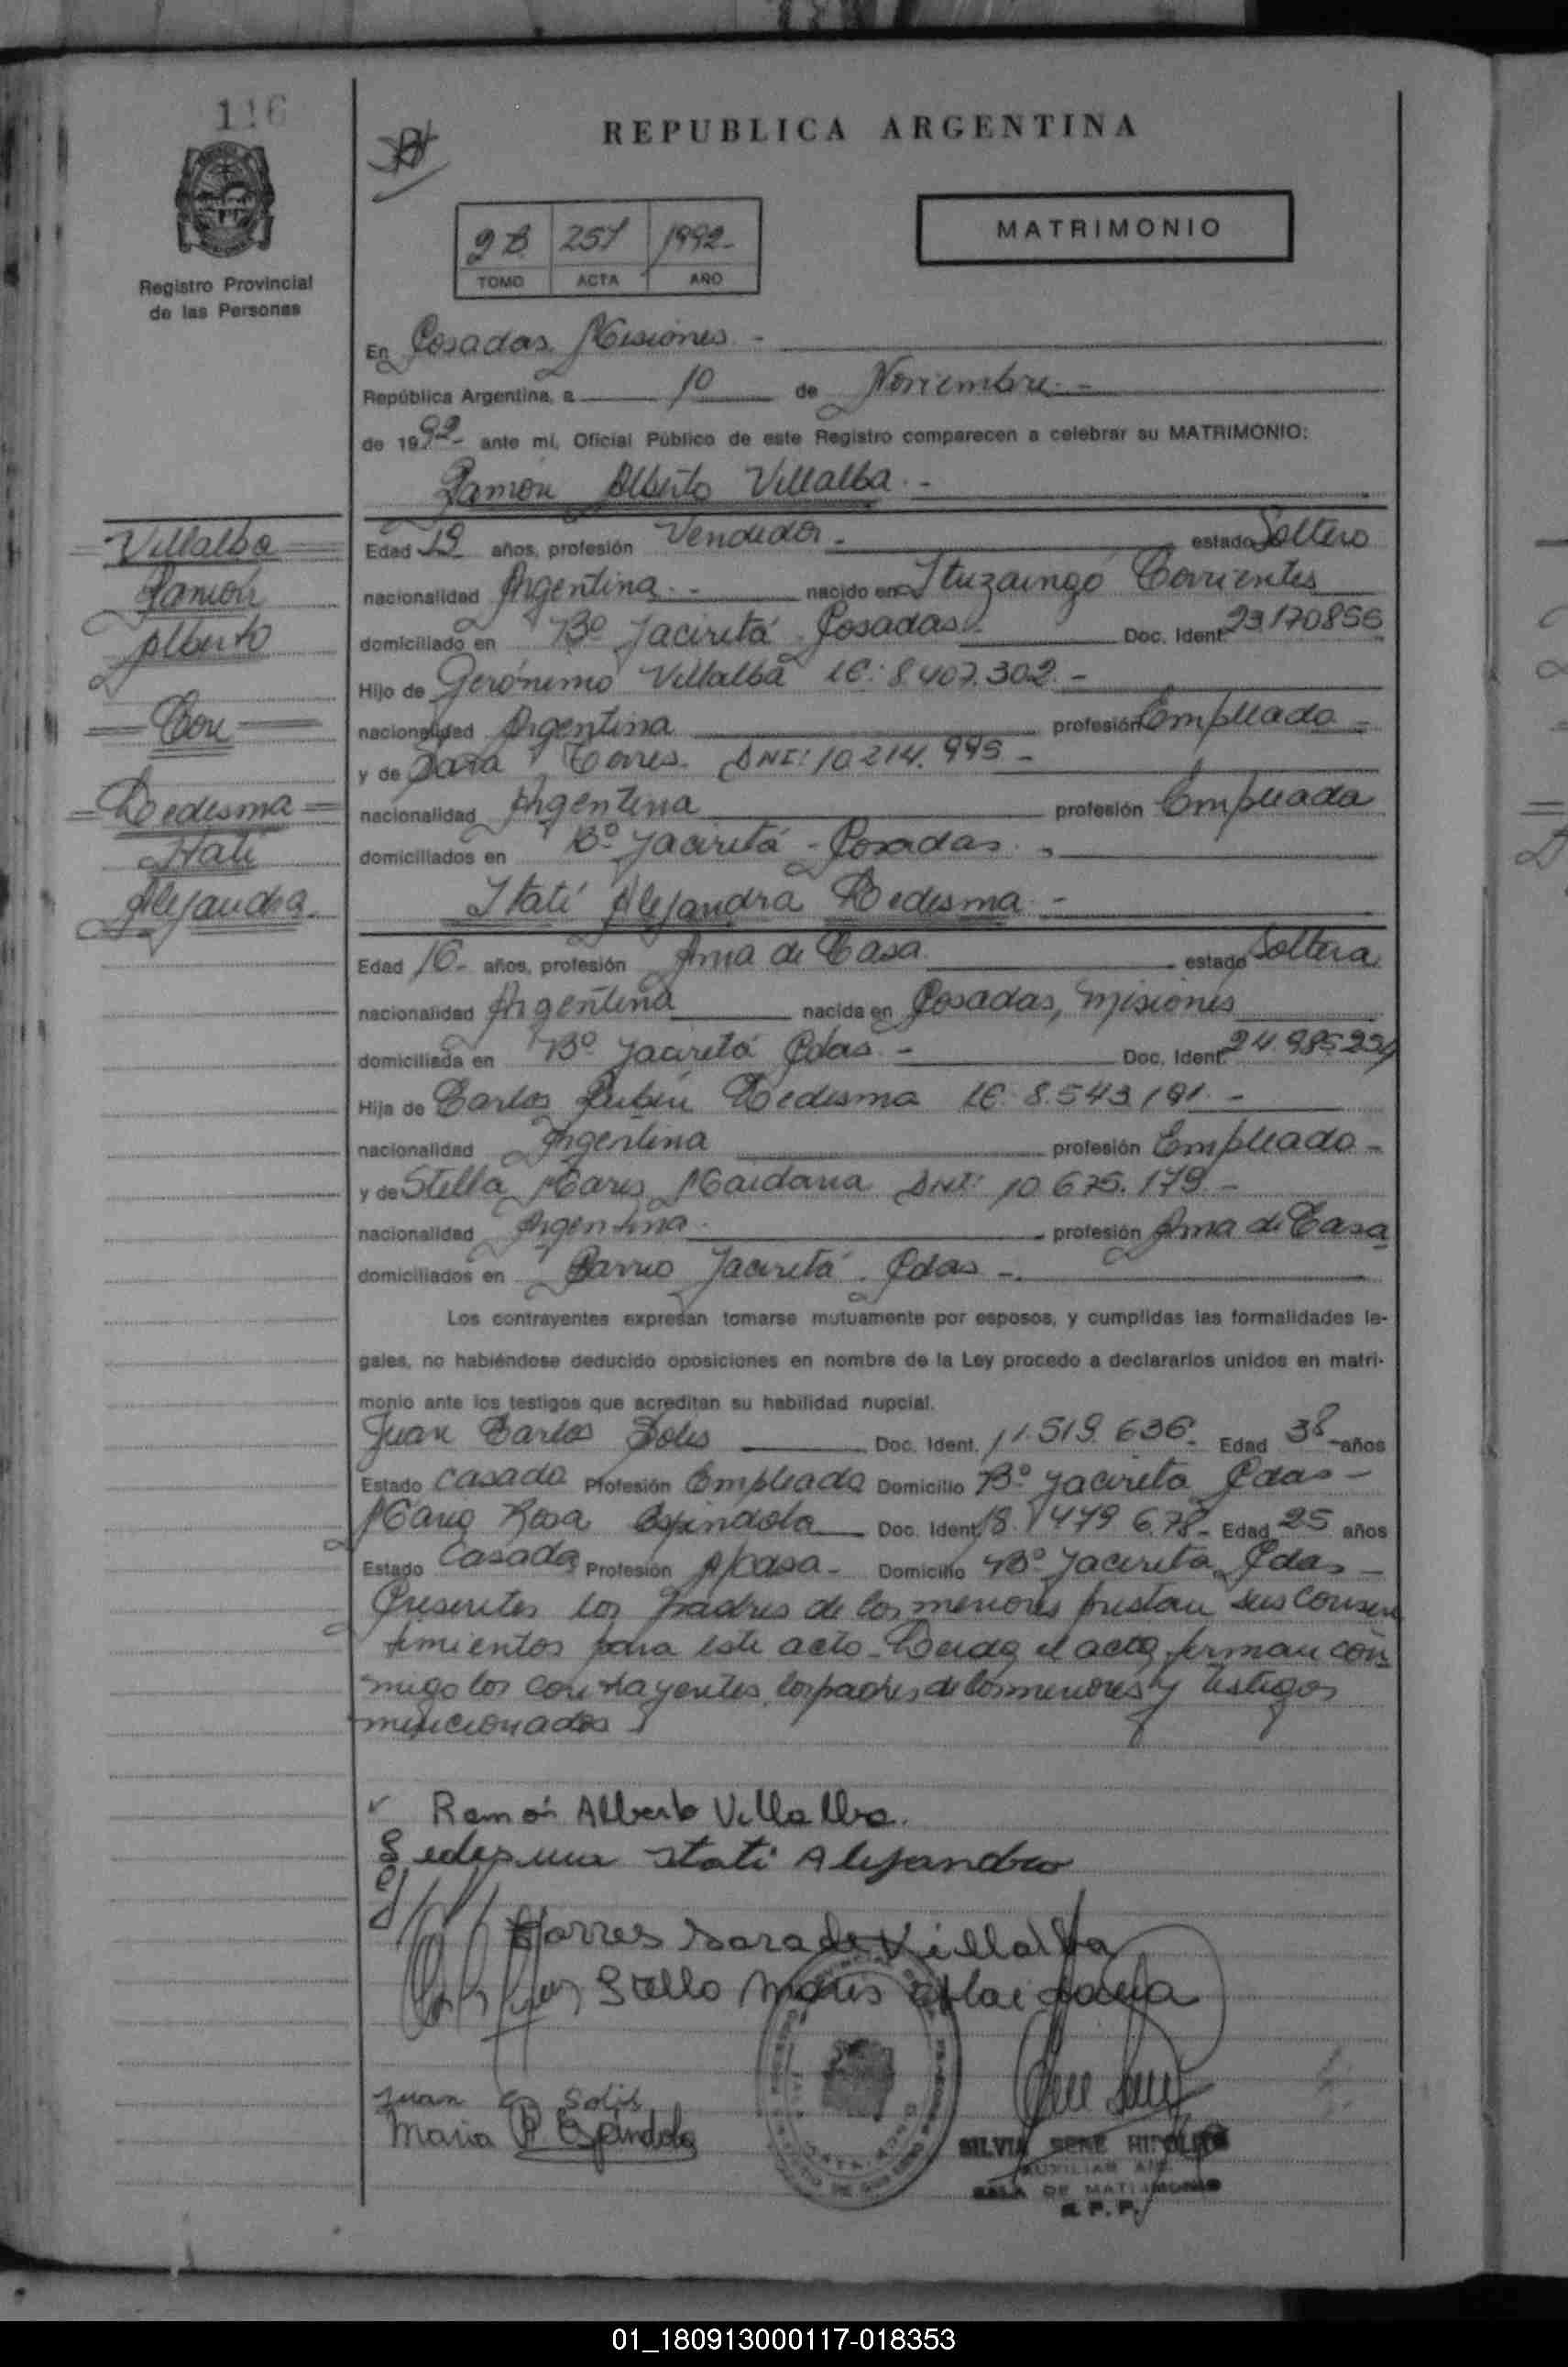 116
REPUBLICA ARGENTINA
Registro Provincial
de las Personas
2B 251 1992-
TOMO ACTA AÑO
MATRIMONIO
En Posadas, Misiones -
República Argentina, a 10 de Noviembre -
de 1992- ante mí, Oficial Público de este Registro comparecen a celebrar su MATRIMONIO:
Ramón Alberto Villalba. -
Villalba
Ramón
Alberto
Con
Ledesma
Itatí
Alejandra.
Edad 19 años, profesión Vendedor. estado Soltero
nacionalidad Argentina. - nacido en Ituzaingó Corrientes
domiciliado en Bº Jaciretá Posadas. Doc. Ident. 23170856
Hijo de Gerónimo Villalba LE: 8.407.302. -
nacionalidad Argentina profesión Empleado -
y de Sara Torres. DNI: 10.214.995 -
nacionalidad Argentina profesión Empleada
domiciliados en Bº Jaciretá - Posadas. -
Itatí Alejandra Ledesma. -
Edad 16- años, profesión Ama de Casa. estado Soltera
nacionalidad Argentina nacida en Posadas, Misiones
domiciliada en Bº Jaciretá Pdas. - Doc. Ident. 24.985.234
Hija de Carlos Rubén Ledesma LE 8.543.191. -
nacionalidad Argentina profesión Empleado -
y de Stella Maris Maidana DNI: 10.675.179. -
nacionalidad Argentina. profesión Ama de Casa
domiciliados en Barrio Jaciretá. Pdas -.
Los contrayentes expresan tomarse mutuamente por esposos, y cumplidas las formalidades le-
gales, no habiéndose deducido oposiciones en nombre de la Ley procedo a declararlos unidos en matri-
monio ante los testigos que acreditan su habilidad nupcial.
Juan Carlos Solis Doc. Ident. 11.519.636. Edad 38 años
Estado Casado Profesión Empleado Domicilio Bº Jacireta Pdas -
Maria Rosa Espindola Doc. Ident. 18.479.678- Edad 25 años
Estado Casada Profesión A/casa - Domicilio Bº Jacireta Pdas -
Presentes los padres de los menores prestan sus consen
timientos para este acto - Leida el acta firman con-
migo los contrayentes, los padres de los menores y testigos
mencionados
Ramón Alberto Villalba.
Ledesma Itati Alejandra
Torres Sara de Villalba
Stella Maris Maidana
Juan C Solis
Maria R. Espindola
SILVIA RENE HIPOLITO
AUXILIAR
SALA DE MATRIMONIO
R. P. P.
01_180913000117-018353